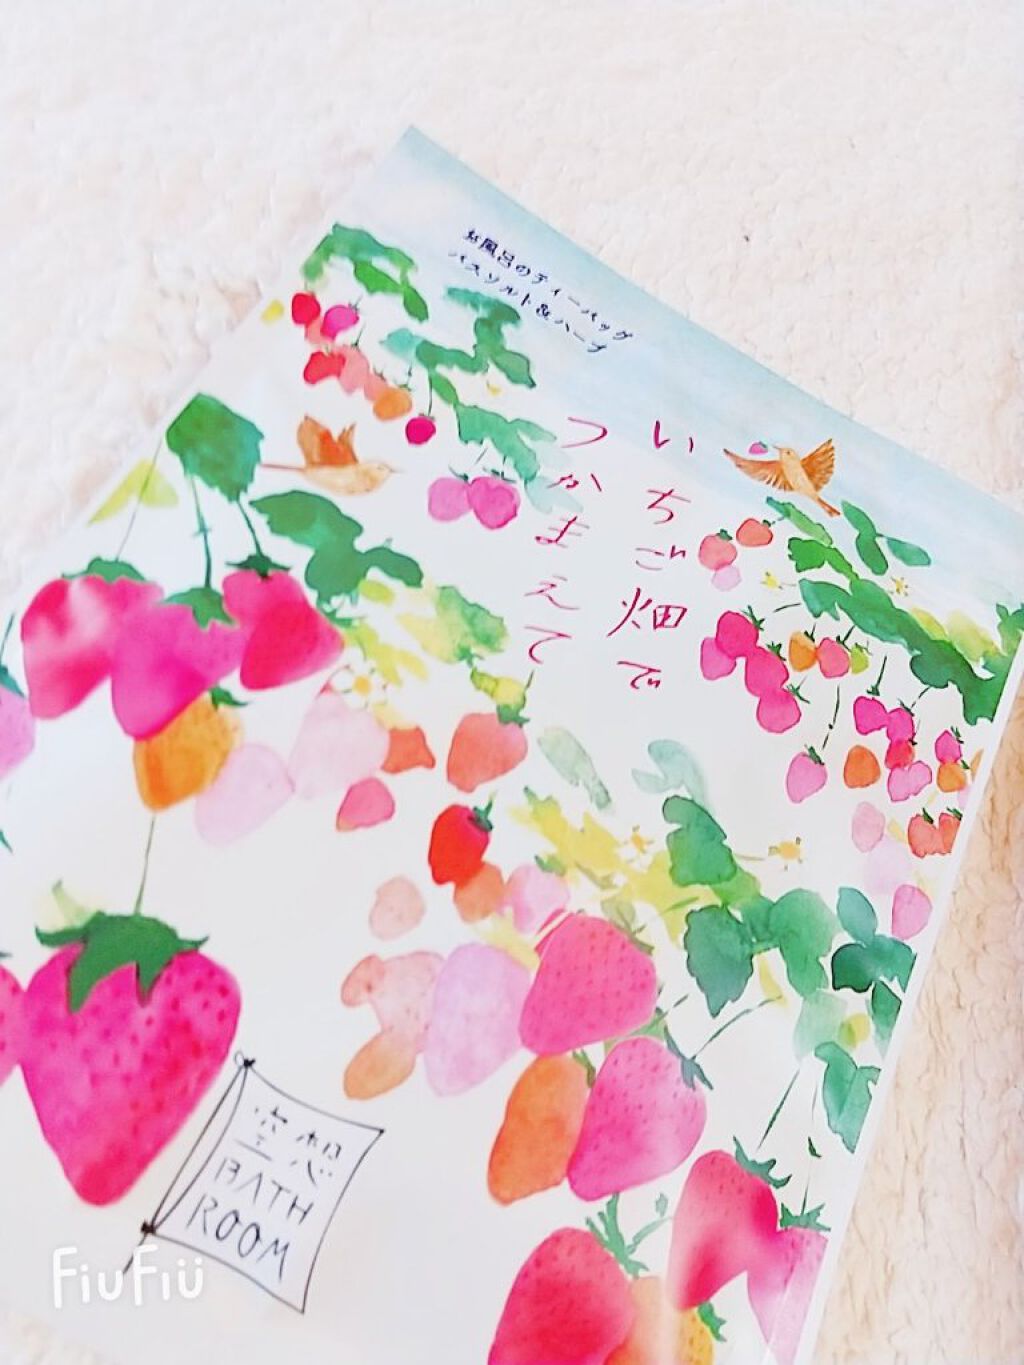 お風呂のティーバッグ
バスソルト&ハーブ
いちご畑で
つかまえて
空想
BATH
ROOM
FiuFiü